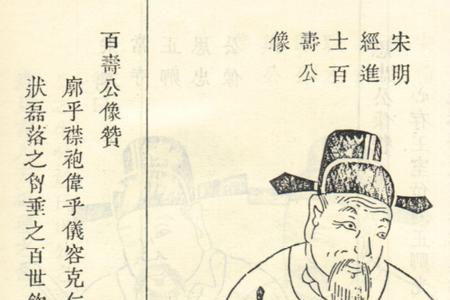 宋明
經進
士百
壽公
像
百壽公像贊
廓乎襟袍偉乎儀容克
狀磊落之垂之百世